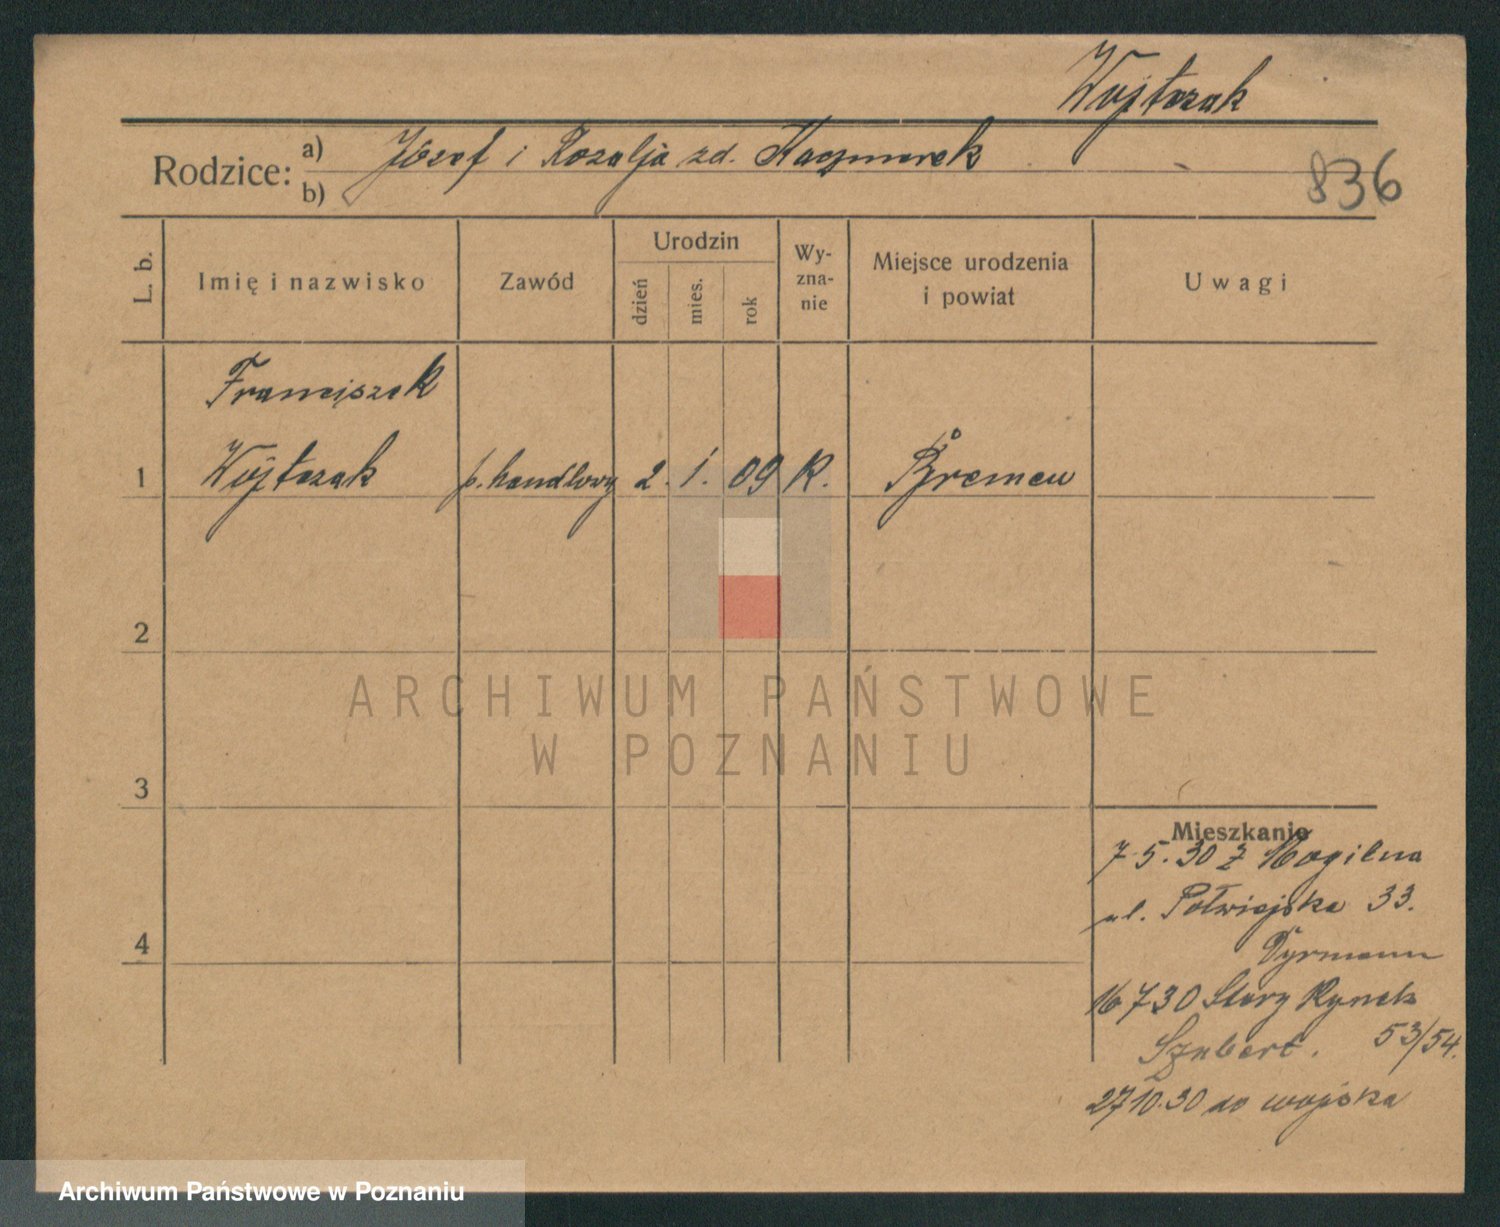 Wojtczak
Rodzice: a) Józef i Rozalja zd. Kaczmarek
b)
836
L. b.
Imię i nazwisko
Zawód
Urodzin
dzień
mies.
rok
Wy-
zna-
nie
Miejsce urodzenia
i powiat
Uwagi
Franciszek
1 Wojtczak p. handlowy 2. 1. 09 R. Bremen
2
ARCHIWUM PAŃSTWOWE
W POZNANIU
3
Mieszkanie
7.5.30 z Mogilna
ul. Półwiejska 33.
4
16 7 30 Stary Rynek
53/54.
Szubert.
27 10.30 do wojska
Archiwum Państwowe w Poznaniu